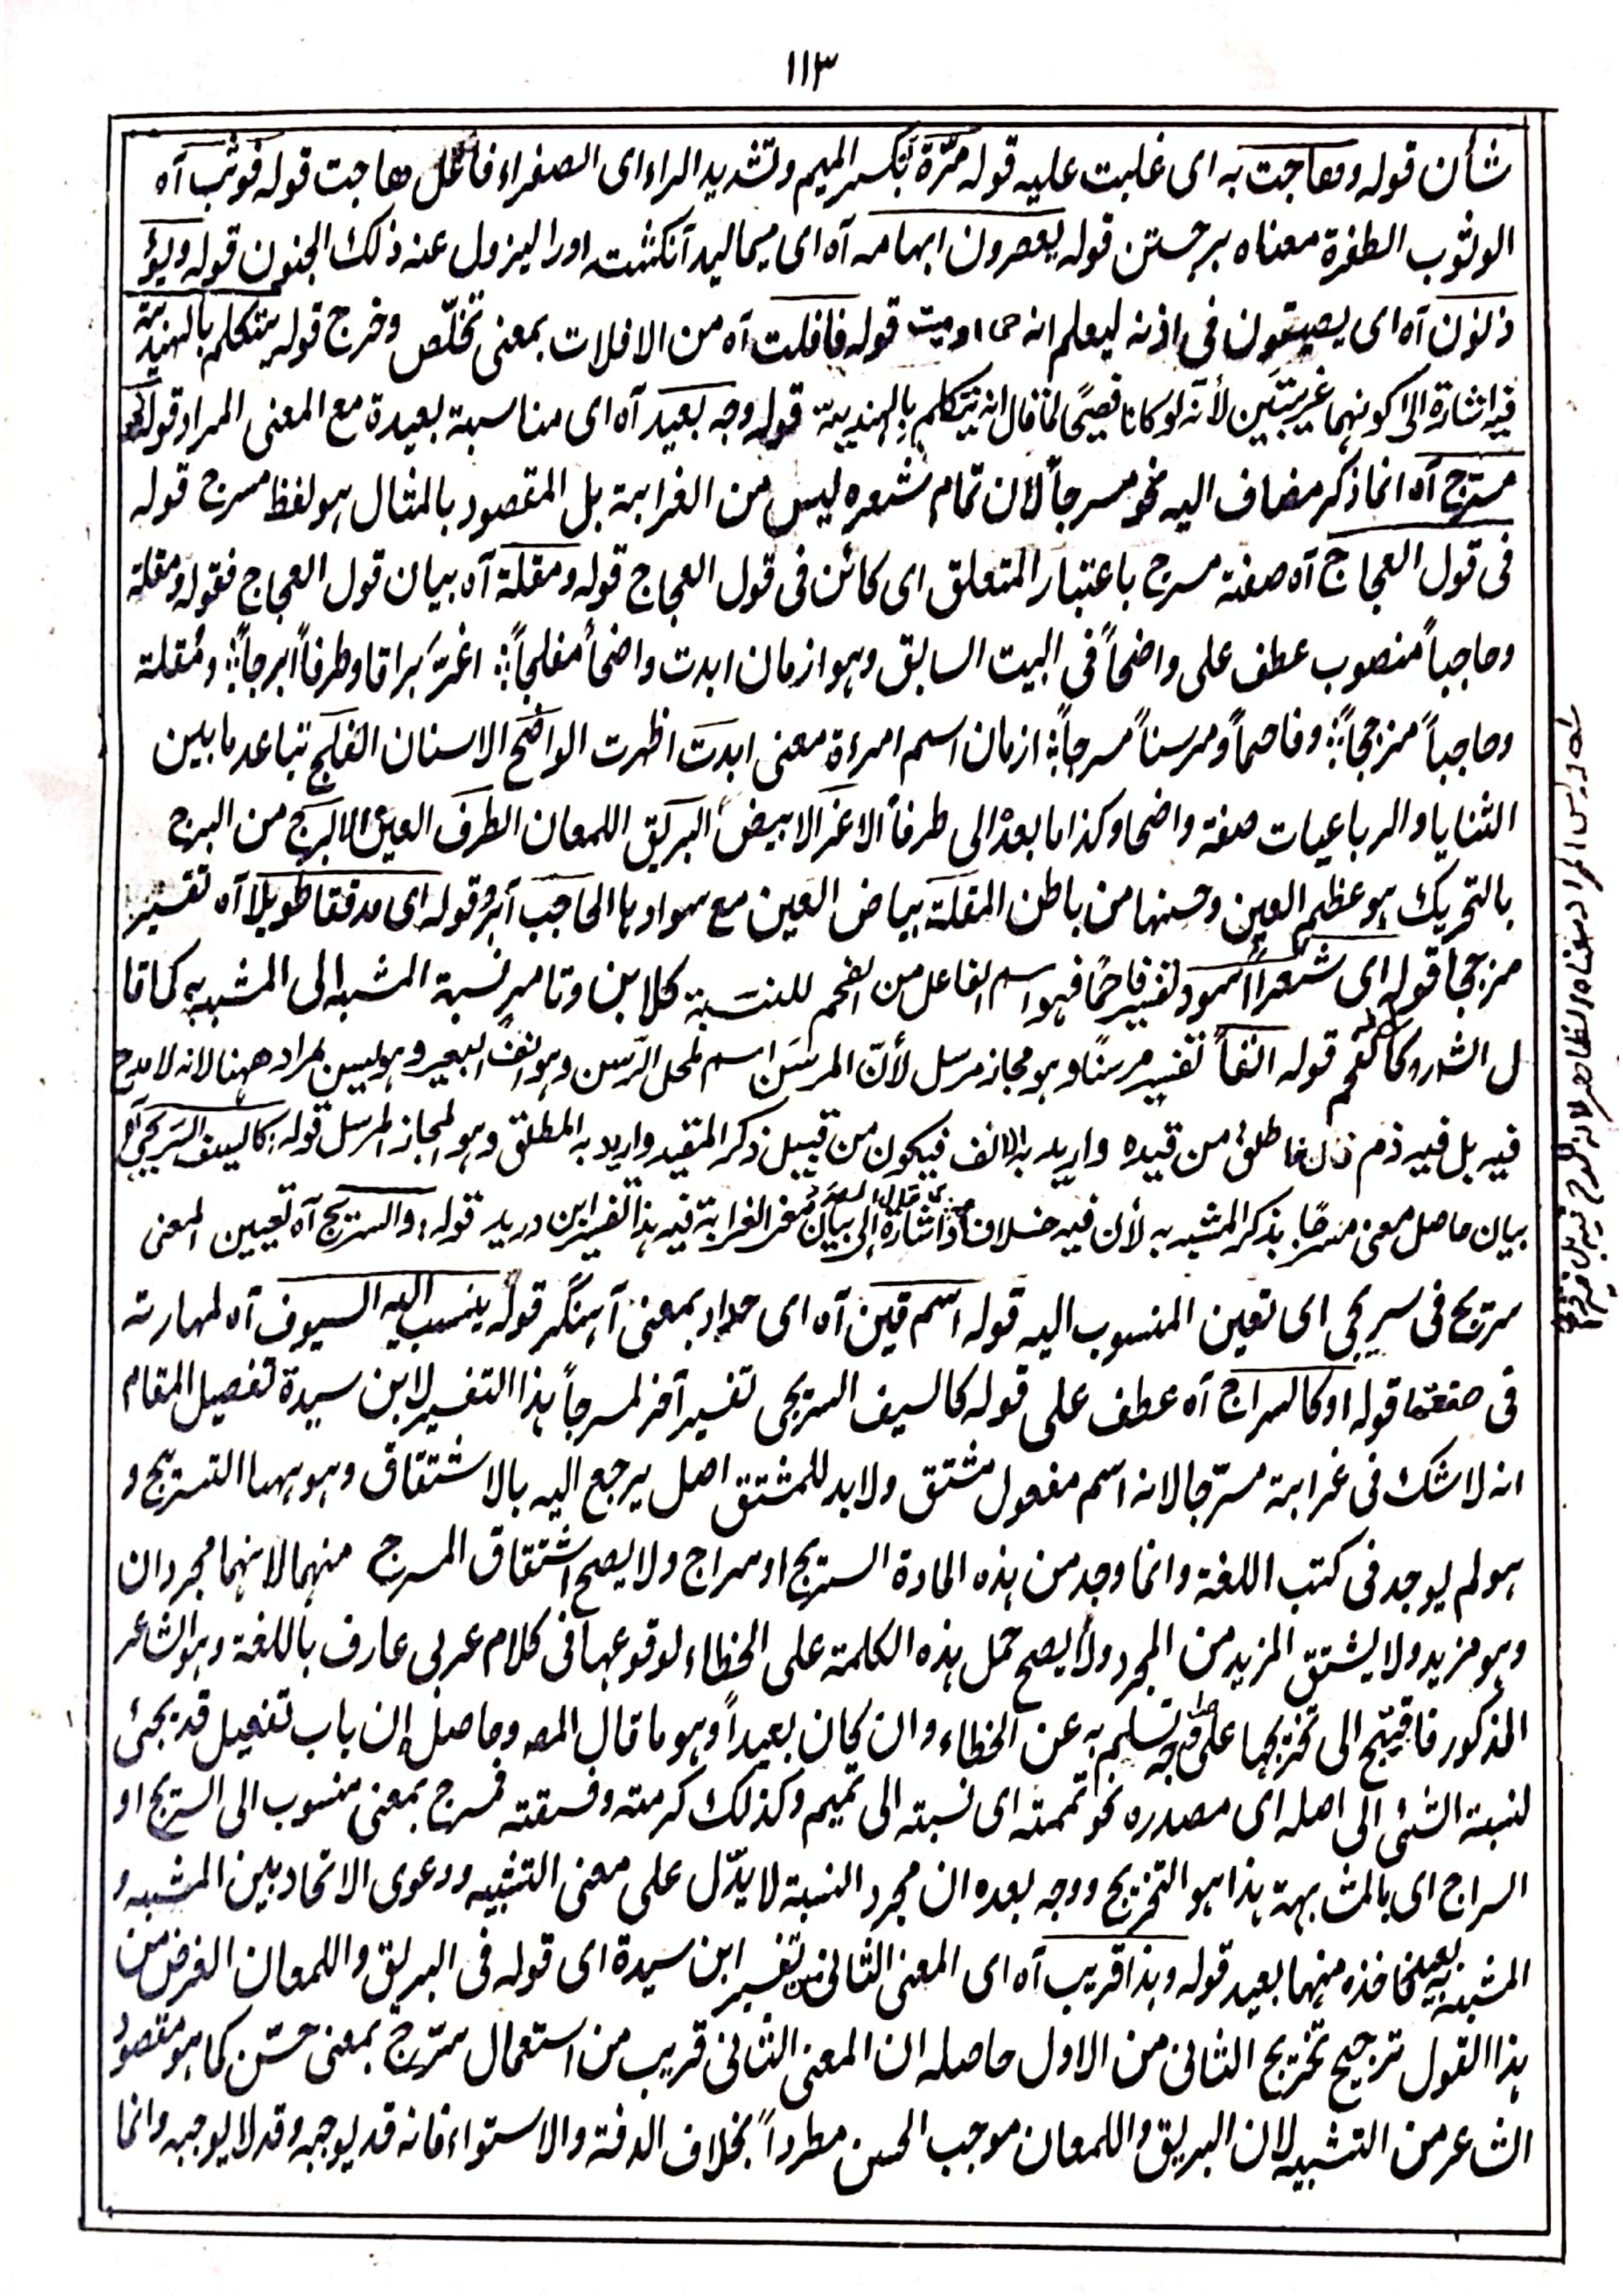 ١١٣
شأن قوله وهاجت به اى غلبت عليه قوله مرّة بكسر الميم وتشديد الراء اى الصفراء فاعل هاجت قوله فوثب آه
الوثوب الطفرة معناه برجستن قوله يعصرون ابهامه آه اى ميماليد آنكشت اورا ليزول عنه ذلك الجنون قوله ويؤ
ذنون آه اى يصيتون فى اذنه ليعلم انه حى او ميت قوله فافلت آه من الافلات بمعنى تخلّص وخرج قوله يتكلم بالهندية
فيه اشارة الى كونهما غريبتين لأنه لو كانا فصيحًا لما قال انه يتكلم بالهندية قوله وجه بعيد آه اى مناسبة بعيدة مع المعنى المراد قوله نحو
مسرّج آه انما ذكر مضاف اليه نحو مسرجاً لان تمام شعره ليس من الغرابة بل المقصود بالمثال هو لفظ مسرج قوله
فى قول العجاج آه صفة مسرج باعتبار المتعلق اى كائن فى قول العجاج قوله ومقلة آه بيان قول العجاج فقوله ومقلة
وحاجباً منصوب عطف على واضحاً فى البيت السابق وهو ازمان ابدت واضحاً مفلجاً؛ اغرّ براقا وطرفاً ابرجاً؛ ومُقلة
وحاجباً مزججاً؛ وفاحماً ومرسناً مسرجاً؛ ازمان اسم امرءة معنى ابدت اظهرت الواضح الاسنان الفلج تباعد ما بين
الثنايا والرباعيات صفة واضحا وكذا ما بعده الى طرفاً الاغر الابيض البريق اللمعان الطرف العين الابرج من البرج
بالتحريك هو عظم العين وحسنها من باطن المقلة بياض العين مع سوادها الحاجب آبرو قوله اى مدققا طويلا آه تفسير
مزججا قوله اى شعراً اسود تفسير فاحمًا فهو اسم الفاعل من الفحم للنسبة كلابن وتامر نسبة المشبه الى المشبه به كما قا
ل الشر كالفحم قوله انفاً تفسير مرسنًا وهو مجاز مرسل لأنّ المرسَن اسم لمحل الرّسن وهو انف البعير وهو ليس بمراد ههنا لانه لا مدح
فيه بل فيه ذم فاطلق من قيده واريد به الانف فيكون من قبيل ذكر المقيد واريد به المطلق وهو المجاز المرسل قوله كالسيف السريجى آه
بيان حاصل معنى مسرجًا بذكر المشبه به لأن فيه خلاف واشارة الى بيان معنى الغرابة فيه هذا تفسير ابن دريد قوله والسريج آه تعيين المعنى
سريج فى سريجى اى تعين المنسوب اليه قوله اسم قين آه اى حداد بمعنى آهنگر قوله ينسب اليه السيوف آه لمهارته
فى صنعتها قوله او كالسراج آه عطف على قوله كالسيف السريجى تفسير آخر لمسرجاً هذا التفسير لابن سيدة تفصيل المقام
انه لا شك فى غرابة مسرّجا لانه اسم مفعول مشتق ولابد للمشتق اصل يرجع اليه بالاشتقاق وهو ههنا التسريج و
هو لم يوجد فى كتب اللغة وانما وجد من هذه المادة السريج او سراج ولا يصح اشتقاق المسرج منهما لانهما مجردان
وهو مزيد ولا يشتق المزيد من المجرد ولا يصح حمل هذه الكلمة على الخطاء لوقوعها فى كلام عربى عارف باللغة وهو الشاعر
المذكور فاحتيج الى تخريجها على وجه تسلم به عن الخطاء وان كان بعيداً وهو ما قال المصـ وحاصل إن باب تفعيل قد يجئ
لنسبة الشئ الى اصله اى مصدره نحو تممته اى نسبته الى تميم وكذلك كرمته وفسقته فمسرج بمعنى منسوب الى السريج او
السراج اى بالمشابهة هذا هو التخريج ووجه بعده ان مجرد النسبة لا يدّل على معنى التشبيه ودعوى الاتحاد بين المشبه و
المشبه به بعيد فاخذه منهما بعيد قوله وهذا قريب آه اى المعنى الثانى من تفسير ابن سيدة اى قوله فى البريق واللمعان الغرض من
هذا القول ترجيح تخريج الثانى من الاول حاصله ان المعنى الثانى قريب من استعمال سرّج بمعنى حسّن كما هو مقصود
الشاعر من التشبيه لان البريق واللمعان موجب الحسن مطرداً بخلاف الدقة والاستواء فانه قد يوجبه وقد لا يوجبه وانما